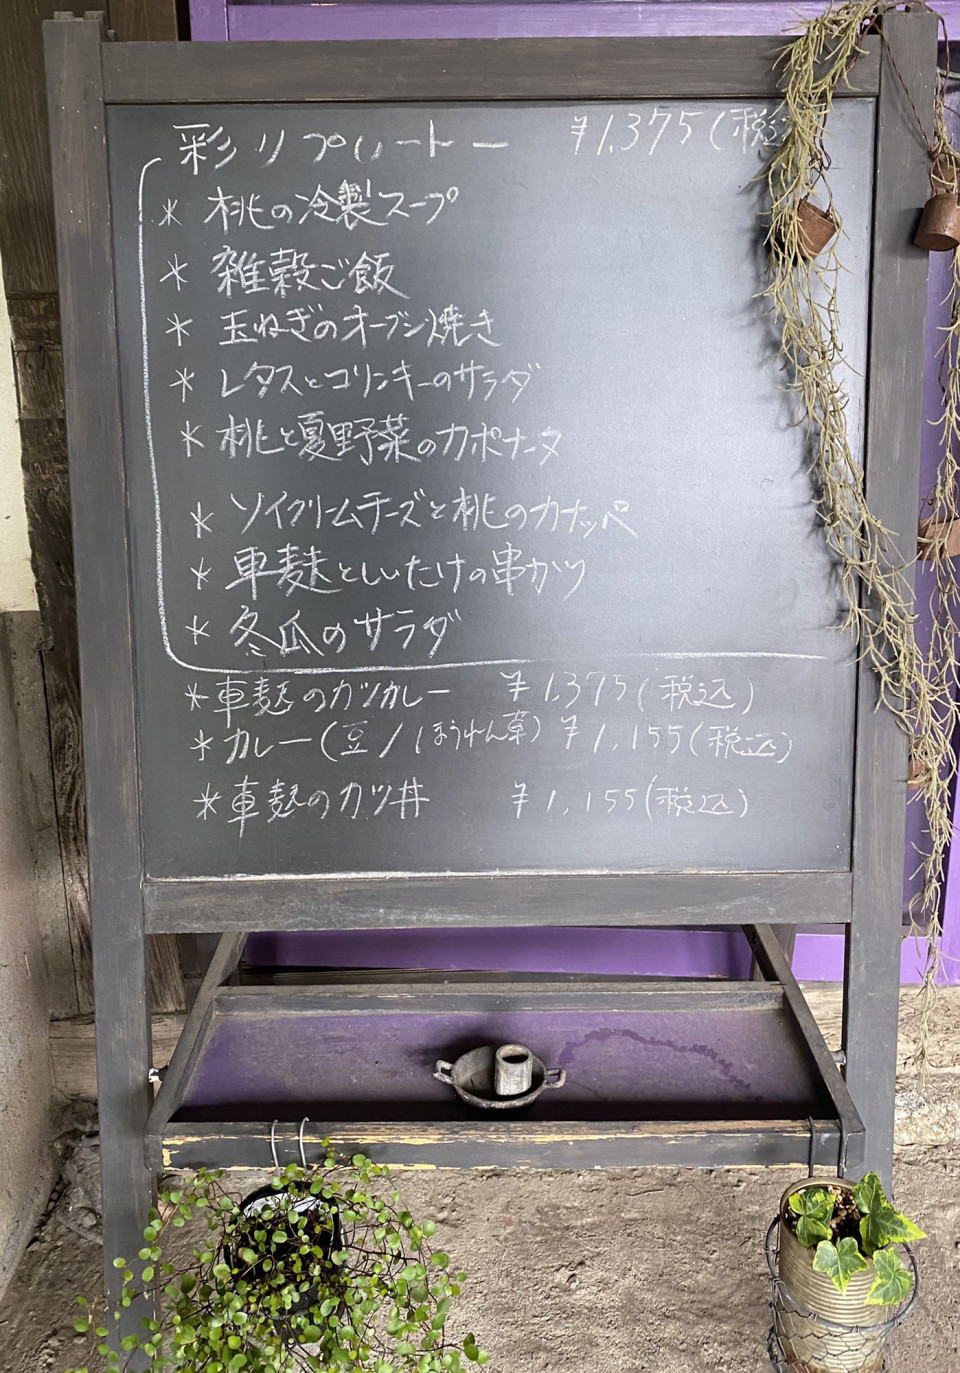 彩りプレート ¥1,375(税込
* 桃の冷製スープ
* 雑穀ご飯
* 玉ねぎのオーブン焼き
* レタスとコリンキーのサラダ
* 桃と夏野菜のカポナータ
* ソイクリームチーズと桃のカナッペ
* 車麩としいたけの串かツ
* 冬瓜のサラダ
*車麩のカツカレー ¥1,375(税込)
*カレー(豆/ほうれん草) ¥1,155(税込)
*車麩のカツ丼 ¥1,155(税込)